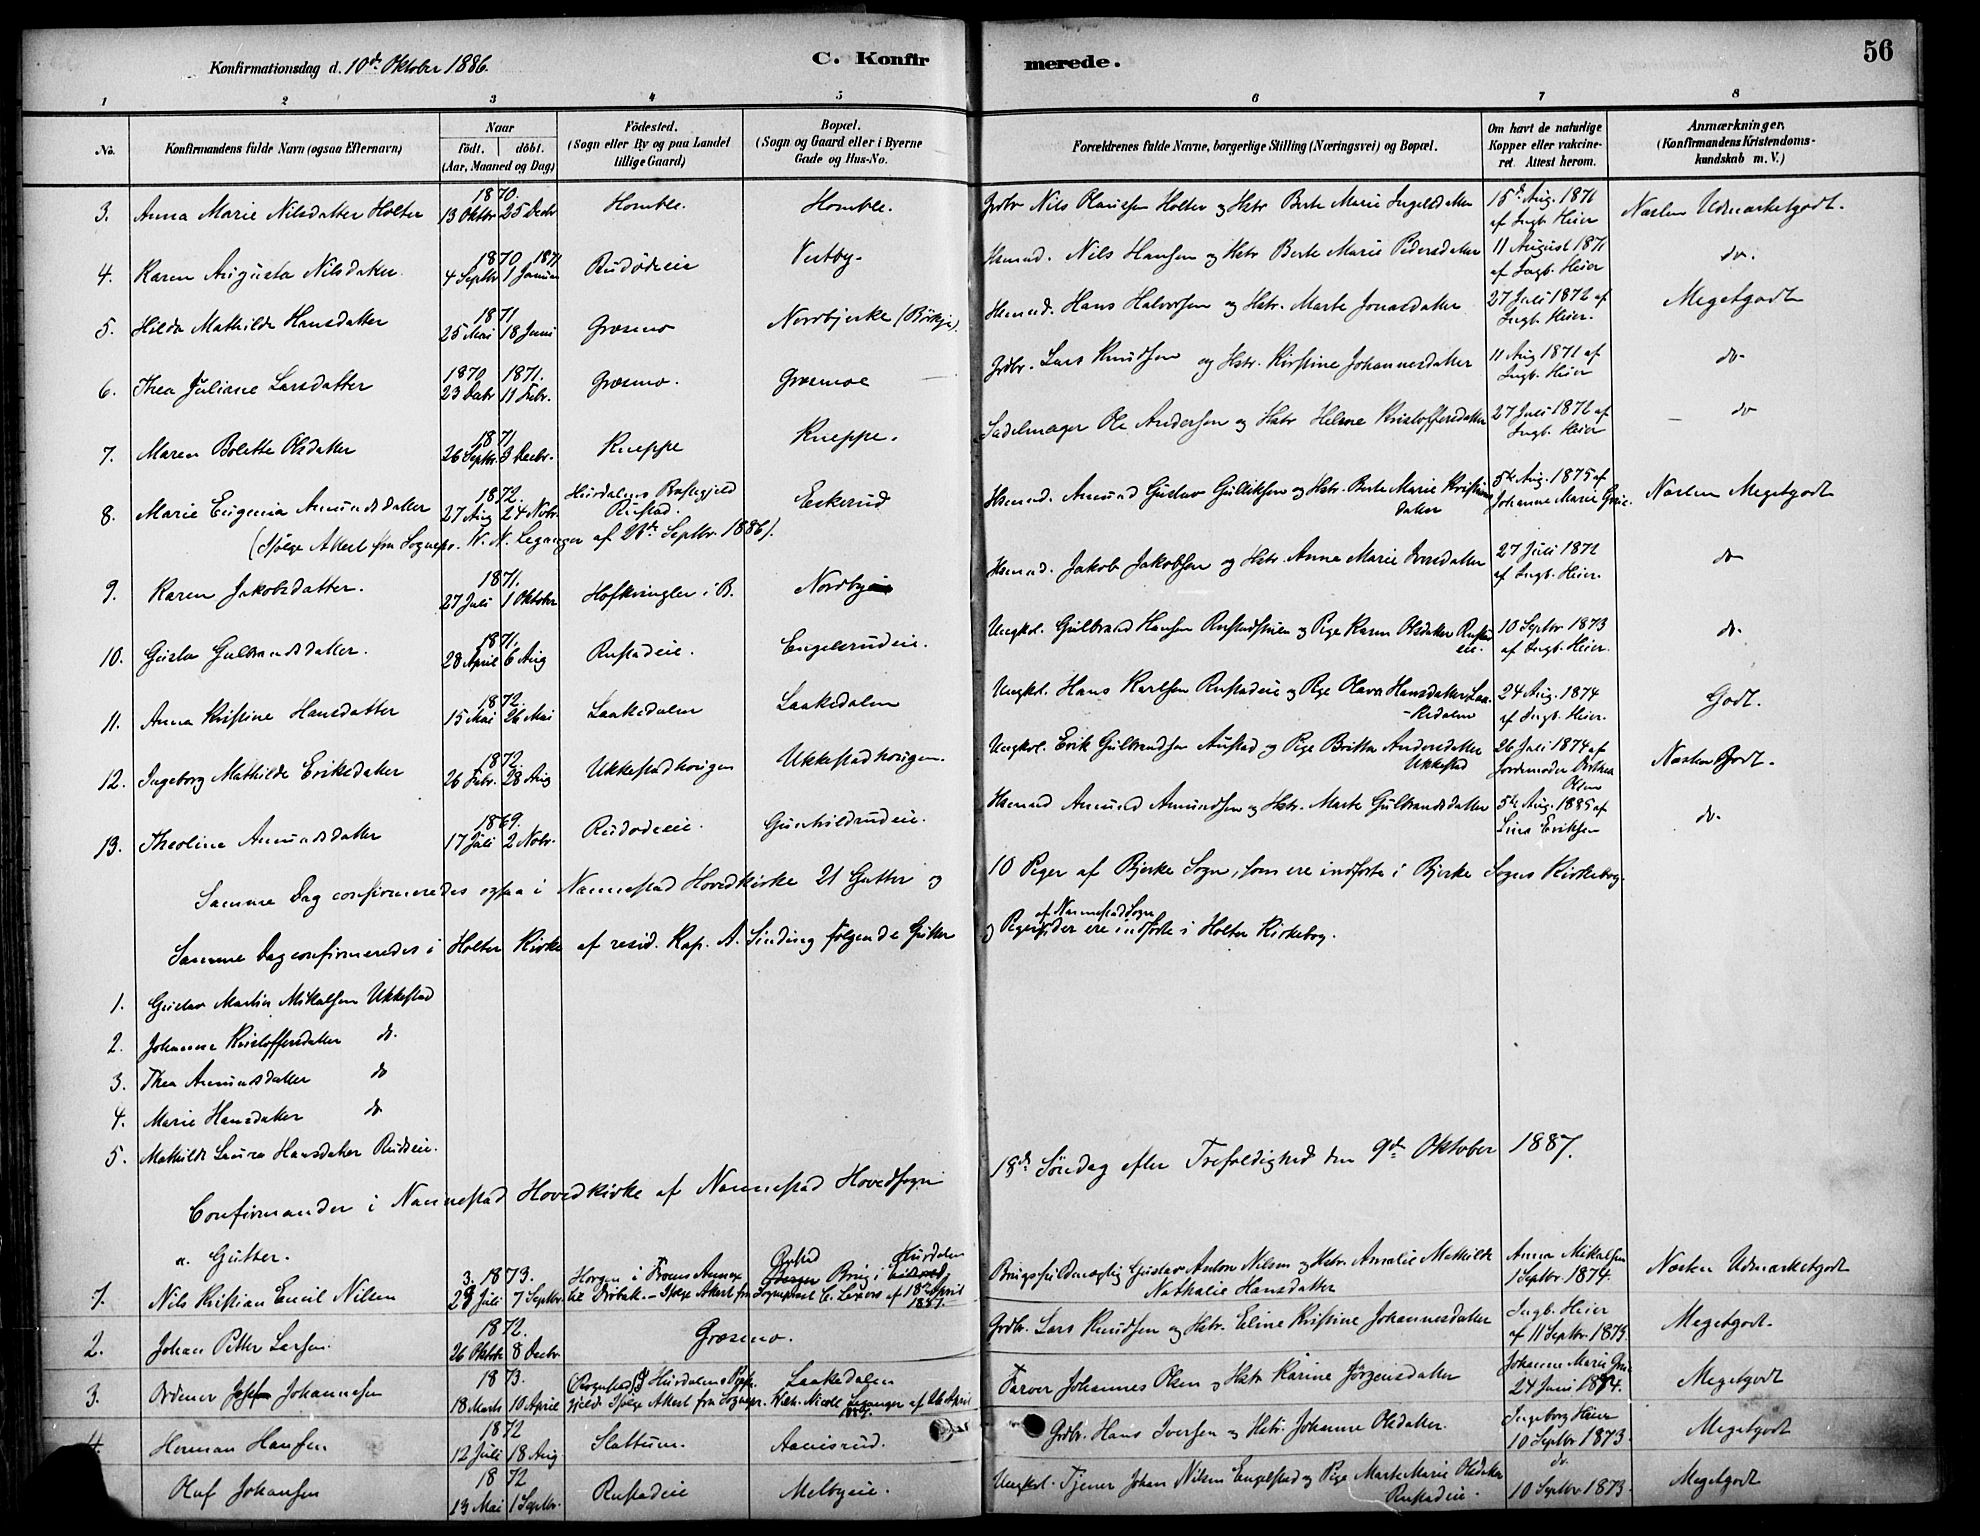 56
Konfirmationsdag d. 10de Oktober 1886.
C. Konfirmerede.
1 2 3 4 5 6 7 8
No. Konfirmandens fulde Navn (ogsaa Efternavn)
Naar født. døbt. (Aar, Maaned og Dag)
Fødested. (Sogn eller By og paa Landet tillige Gaard)
Bopæl. (Sogn og Gaard eller i Byerne Gade og Hus-No.
Forældrenes fulde Navne, borgerlige Stilling (Næringsvei) og Bopæl.
Om havt de naturlige Kopper eller vakcineret. Attest herom.
Anmærkninger. (Konfirmandens Kristendomskundskab m. V.)
3. Anna Marie Nilsdatter Holter 1870. 13 Oktbr 25 Decbr Homble. Homble. Grdbr Nils Olavesen Holter og Hstr Berte Marie Ingelsdatter 15de Aug. 1871 af Ingb. Heier Næsten Udmærketgodt.
4. Karen Augusta Nilsdatter. 1870 4 Septbr 1871 1 Januar Rudødeie Vestby- Hsmand. Nils Hansen og Hstr Berte Marie Pedersdatter 11 August 1871 af Ingb. Heier do.
5. Hilda Mathilde Hansdatter 1871 25 Mai 18 Juni Græsmo Nordbjerke (Bjerke). Hsmand. Hans Halvorsen og Hstr. Marte Jonasdatter 27 Juli 1872 af Ingb. Heier. Megetgodt
6. Thea Juliane Larsdatter 1870 23 Decbr 1871. 11 Febr. Græsmo. Græsmoe Grdbr. Lars Knudsen og Hstr. Kirstine Johannesdatter 11 Aug 1871 af Ingb. Heier do-
7. Maren Bolette Olsdatter 1871 26 Septbr 3 Decbr. Kneppe Kneppe. Sadelmager Ole Andersen og Hstr Helene Kristoffersdatter 27 Juli 1872 af Ingb. Heier do
8. Marie Eugenia Amundsdatter 1872. 27 Aug 24 Novbr Hurdalens Præstegjeld Rustad. Eskerud Hsmand. Amund Gustav Gulliksen og Hstr. Berte Marie Kristiansdatter 5te Aug. 1875 af Johanne Marie Grue. Næsten Megetgodt
(Ifølge Attest fra Sognepr. W. N. Leganger af 20de Septbr. 1886).
9. Karen Jakobsdatter. 1871. 27 Juli 1 Oktober Hofkvingler i B. Nordbye Hsmand. Jakob Jakobsen og Hstr. Anna Marie Iversdatter 27 Juli 1872 af Ingb. Heier. do
10. Gusta Gulbrandsdatter. 1871. 28 April 6 Aug Rustadeie. Engelsrudeie. Ungkl. Gulbrand Hansen Rustadstuen og Pige Karen Olsdatter Rustadeie. 10 Septbr 1873 af Ingb. Heier. do-
11. Anna Kristine Hansdatter 1872. 15 Mai 26 Mai Laakedalen Laakedalen Ungkl. Hans Karlsen Rustadeie og Pige Olava Hansdatter Laakedalen 24 Aug. 1874 af Ingb. Heier. Godt.
12. Ingeborg Mathilde Eriksdatter 1872. 26 Febr. 28 Aug Ukkestadhougen Ukkestadhougen. Ungkl. Erik Gulbrandsen Austad og Pige Britta Andersdatter Ukkestad 26 Juli 1874 af Jordemoder Dorthea Olsen Næsten Godt.
13. Theoline Amundsdatter 1869. 17 Juli 2 Novbr. Rudødeeie. Gunhildrudeie. Hsmand Amund Amundsen og Hstr. Marte Gulbrandsdatter 5te Aug. 1885 af Lina Eriksen do-
Samme Dag confirmeredes ogsaa i Nannestad Hovedkirke 21 Gutter og 10 Piger af Bjerke Sogn, som ere indførte i Bjerke Sogns Kirkebog.
Samme Dag confirmeredes i Holter Kirke af resid. Kap. A. Sinding følgende Gutter og Piger af Nannestad Sogn, der ere indførte i Holter Kirkebog.
1. Gustav Martin Mikalsen Ukkestad
2. Johanne Kristoffersdatter do.
3. Thea Amundsdatter do
4. Marie Hansdatter do
5. Mathilde Laura Hansdatter Rudseie.
Confirmander i Nannestad Hovedkirke af Nannestad Hovedsogn 18de Søndag efter Trefoldighed den 9de Oktober 1887.
a. Gutter.
1. Nils Kristian Emil Nilsen 1873. Juli 7 Septbr. Horgen i Froens Annex til Drøbak. - Ifølge Attest fra Sognepræst af 18de April 1887. Brug i Hurdalen Brugsfuldmægtig Gustav Anton Nilsen og Hstr. Amalie Mathilde Nathalie Hansdatter Anna Mikalsen 1 Septbr. 1874. Næsten Udmærketgodt
2. Johan Petter Larsen. 1872. 26 Oktobr 8 Decbr. Græsmo. Grdbr. Lars Knudsen og Hstr. Eline Kristine Johannesdatter Ingb. Heier af 11 Septbr. 1873. Megetgodt.
3. Ordener Johannesen 1873. 18 Marts 10 April (Rognstad) I Hurdalens Præstegjeld. Ifølge Attest fra Sognepr. Wilh. Nicolai Leganger af April 1887. Laakedalen Farver Johannes Olsen og Hstr Karine Jørgensdatter Johanne Marie Grue 24 Juni 1874. Megetgodt
4. Herman Hansen 1872 12 Juli 18 Aug. Slattum. Aamisrud. Grdbr. Hans Iversen og Hstr. Johanne Olsdatter. Ingeborg Heier 10 Septbr 1873. Megetgodt
Oluf Johansen 1872 13 Mai 1 Septbr. Rustadeie Melbyeie. Ungkl. Tjener Johan Nilsen Engelstad og Pige Marte Marie Olsdatter Rustadeie. do. 10 Septbr 1873. Megetgodt